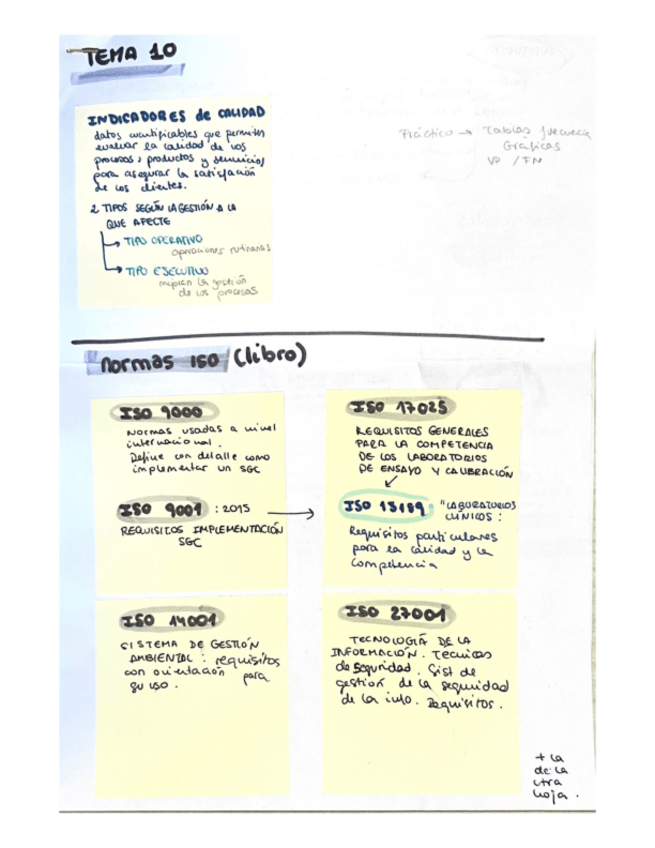 TEMA 10
INDICADORES de CALIDAD
datos cuantificables que permiten
evaluar la calidad de los
procesos, productos y servicios
para asegurar la satisfacción
de los clientes.
2 TIPOS SEGÚN LA GESTIÓN A LA
QUE AFECTE
→ TIPO OPERATIVO
operaciones rutinarias
→ TIPO EJECUTIVO
mejoran la gestión
de los procesos
Práctico → Tablas frecuencia
Gráficas
VP / FN
Normas ISO (libro)
ISO 9000
Normas usadas a nivel
internacional.
Define con detalle como
implementar un SGC
ISO 9001 : 2015 →
REQUISITOS IMPLEMENTACIÓN
SGC
ISO 17025
REQUISITOS GENERALES
PARA LA COMPETENCIA
DE LOS LABORATORIOS
DE ENSAYO Y CALIBRACIÓN
ISO 15189 : "LABORATORIOS
CLÍNICOS :
Requisitos particulares
para la calidad y la
competencia
ISO 14001
SISTEMA DE GESTIÓN
AMBIENTAL : requisitos
con orientación para
su uso.
ISO 27001
TECNOLOGÍA DE LA
INFORMACIÓN. Técnicas
de seguridad. Sist de
gestión de la seguridad
de la info. Requisitos.
+ la
de la
otra
hoja.